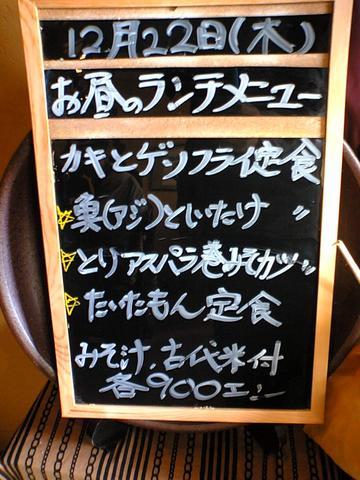 12月22日(木)
お昼のランチメニュー
カキとゲソフライ定食
魚(アジ)といたけ 〃
とりアスパラ巻みそカツ〃
たいたもん定食
みそ汁、古代米付
各900エン